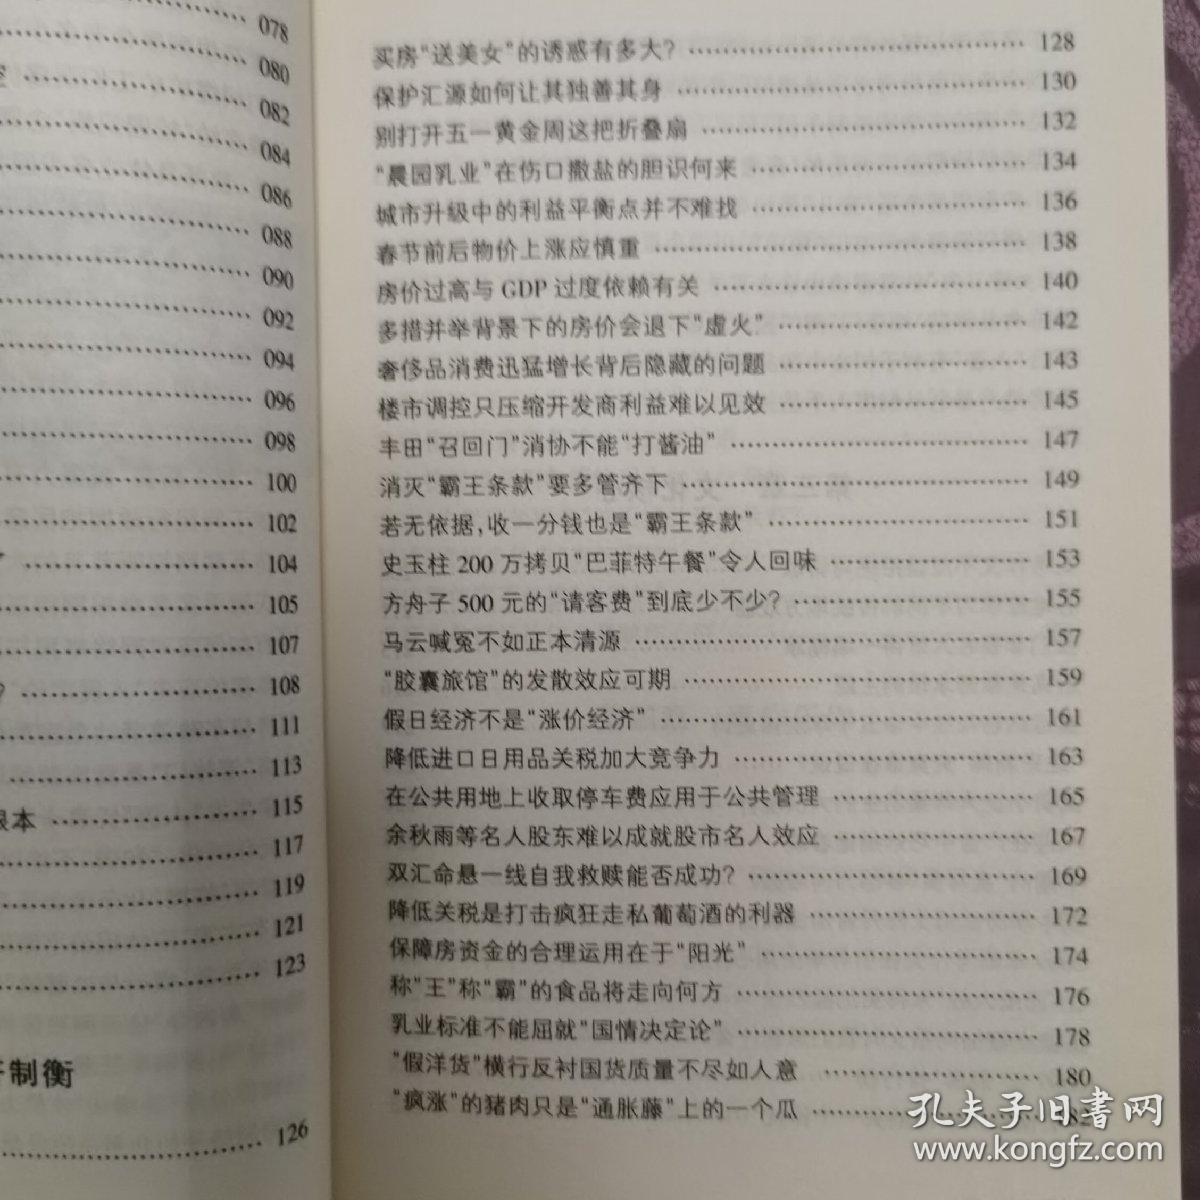 078
080
082
084
086
088
090
092
094
096
098
100
102
104
105
107
? 108
111
113
根本 115
117
119
121
123
制衡
126
买房“送美女”的诱惑有多大? 128
保护汇源如何让其独善其身 130
别打开五一黄金周这把折叠扇 132
“晨园乳业”在伤口撒盐的胆识何来 134
城市升级中的利益平衡点并不难找 136
春节前后物价上涨应慎重 138
房价过高与 GDP 过度依赖有关 140
多措并举背景下的房价会退下“虚火” 142
奢侈品消费迅猛增长背后隐藏的问题 143
楼市调控只压缩开发商利益难以见效 145
丰田“召回门”消协不能“打酱油” 147
消灭“霸王条款”要多管齐下 149
若无依据,收一分钱也是“霸王条款” 151
史玉柱 200 万拷贝“巴菲特午餐”令人回味 153
方舟子 500 元的“请客费”到底少不少? 155
马云喊冤不如正本清源 157
“胶囊旅馆”的发散效应可期 159
假日经济不是“涨价经济” 161
降低进口日用品关税加大竞争力 163
在公共用地上收取停车费应用于公共管理 165
余秋雨等名人股东难以成就股市名人效应 167
双汇命悬一线自我救赎能否成功? 169
降低关税是打击疯狂走私葡萄酒的利器 172
保障房资金的合理运用在于“阳光” 174
称“王”称“霸”的食品将走向何方 176
乳业标准不能屈就“国情决定论” 178
“假洋货”横行反衬国货质量不尽如人意 180
“疯涨”的猪肉只是“通胀藤”上的一个瓜 182
孔夫子旧书网
www.kongfz.com